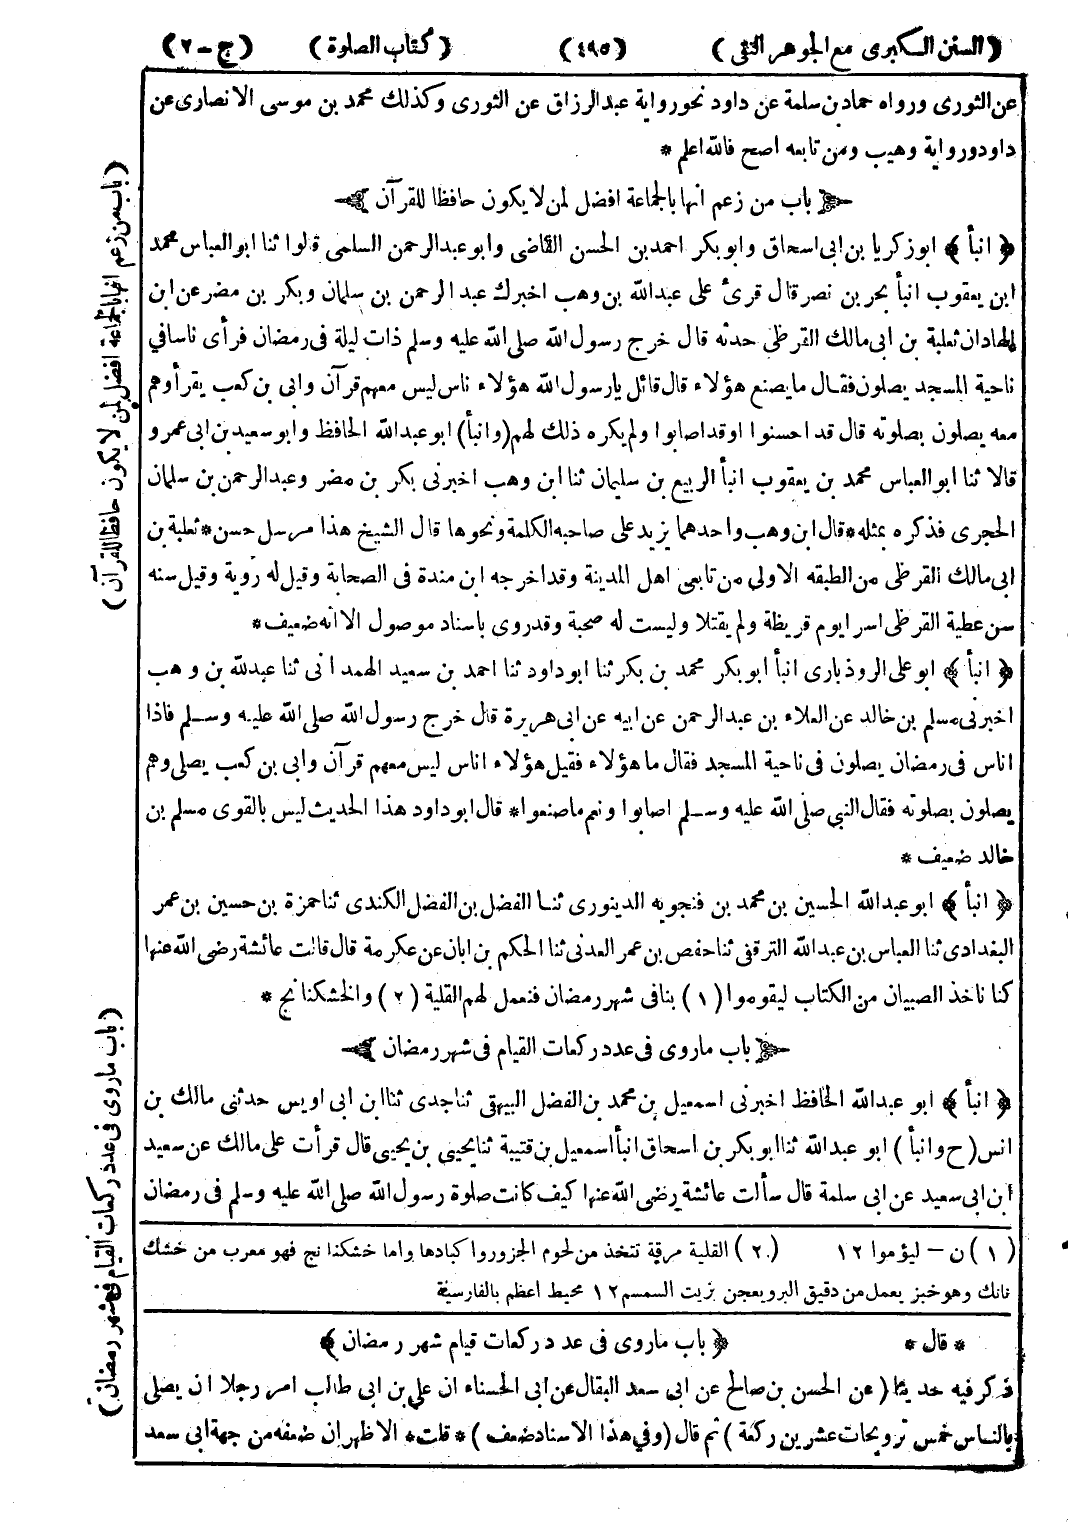 (السنن الكبرى مع الجوهر النقى) (٤٩٥) (كتاب الصلوة) (ج-٢)
عن الثورى ورواه حماد بن سلمة عن داود نحو رواية عبد الرزاق عن الثورى وكذلك محمد بن موسى الانصارى عن
داود ورواية وهيب ومن تابعه اصح فالله اعلم *
﴿ باب من زعم انها بالجماعة افضل لمن لا يكون حافظا للقرآن ﴾
﴿ انبأ ﴾ ابو زكريا بن ابى اسحاق وابو بكر احمد بن الحسن القاضى وابو عبد الرحمن السلمى قالوا ثنا ابو العباس محمد
ابن يعقوب انبأ بحر بن نصر قال قرئ على عبدالله بن وهب اخبرك عبد الرحمن بن سلمان وبكر بن مضر عن ابن
الهاد ان ثعلبة بن ابى مالك القرظى حدثه قال خرج رسول الله صلى الله عليه وسلم ذات ليلة فى رمضان فرأى ناسا في
ناحية المسجد يصلون فقال ما يصنع هؤلاء قال قائل يا رسول الله هؤلاء ناس ليس معهم قرآن وابى بن كعب يقرأ وهم
معه يصلون بصلوته قال قد احسنوا او قد اصابوا ولم يكره ذلك لهم (وانبأ) ابو عبدالله الحافظ وابو سعيد بن ابى عمرو
قالا ثنا ابو العباس محمد بن يعقوب انبأ الربيع بن سليمان ثنا ابن وهب اخبرنى بكر بن مضر وعبد الرحمن بن سلمان
الحجرى فذكره بمثله * قال ابن وهب واحدهما يزيد على صاحبه الكلمة ونحوها قال الشيخ هذا مرسل حسن * ثعلبة بن
ابى مالك القرظى من الطبقه الاولى من تابعى اهل المدينة وقد اخرجه ابن مندة فى الصحابة وقيل له رؤية وقيل سنه
سن عطية القرظى اسرا يوم قريظة ولم يقتلا وليست له صحبة وقد روى باسناد موصول الا انه ضعيف *
﴿ انبأ ﴾ ابو على الروذبارى انبأ ابو بكر محمد بن بكر ثنا ابو داود ثنا احمد بن سعيد الهمدانى ثنا عبدلله بن وهب
اخبرنى مسلم بن خالد عن العلاء بن عبد الرحمن عن ابيه عن ابى هريرة قال خرج رسول الله صلى الله عليه وسلم فاذا
اناس فى رمضان يصلون فى ناحية المسجد فقال ما هؤلاء فقيل هؤلاء اناس ليس معهم قرآن وابى بن كعب يصلى وهم
يصلون بصلوته فقال النبي صلى الله عليه وسلم اصابوا ونعم ما صنعوا * قال ابو داود هذا الحديث ليس بالقوى مسلم بن
خالد ضعيف *
﴿ انبأ ﴾ ابو عبدالله الحسين بن محمد بن فنجويه الدينورى ثنا الفضل بن الفضل الكندى ثنا حمزة بن حسين بن عمر
البغدادى ثنا العباس بن عبدالله الترقفى ثنا حفص بن عمر العدنى ثنا الحكم بن ابان عن عكرمة قال قالت عائشة رضى الله عنها
كنا ناخذ الصبيان من الكتاب ليقوموا (١) بنا فى شهر رمضان فنعمل لهم القلية (٢) والخشكنانج *
﴿ باب ما روى فى عدد ركعات القيام فى شهر رمضان ﴾
﴿ انبأ ﴾ ابو عبدالله الحافظ اخبرنى اسمعيل بن محمد بن الفضل البيهقى ثنا جدى ثنا ابن ابى اويس حدثنى مالك بن
انس (ح وانبأ) ابو عبدالله ثنا ابو بكر بن اسحاق انبأ اسمعيل بن قتيبة ثنا يحيى بن يحيى قال قرأت على مالك عن سعيد
ابن ابى سعيد عن ابى سلمة قال سألت عائشة رضى الله عنها كيف كانت صلوة رسول الله صلى الله عليه وسلم فى رمضان
(١) ن - ليؤموا ١٢ (٢) القلية مرقة تتخذ من لحوم الجزور واكبادها واما خشكنا نج فهو معرب من خشك
نانك وهو خبز يعمل من دقيق البر ويعجن بزيت السمسم ١٢ محيط اعظم بالفارسية
* قال * ﴿ باب ماروى فى عدد ركعات قيام شهر رمضان ﴾
ذكر فيه حديثا (عن الحسن بن صالح عن ابى سعد البقال عن ابى الحسناء ان علي بن ابى طالب امر رجلا ان يصلى
بالناس خمس ترويحات عشرين ركعة) ثم قال (وفي هذا الاسناد ضعف) * قلت * الاظهر ان ضعفه من جهة ابى سعد
(باب من زعم انها بالجماعة افضل لمن لا يكون حافظا للقرآن)
(باب ماروى فى عدد ركعات القيام فى شهر رمضان)